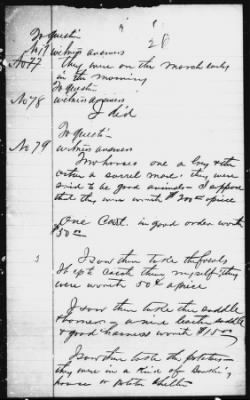 To questi—
20
No 77 witness answers
they were on the march early
in the morning
To Questi—
No 78 witness answers
I did
To Questi—
No 79 witness answers
Two horses one a bay & the
other a sorrel mare. they were
said to be good animals— I suppose
that they were worth $200 00 apiece
One Cart. in good order worth
$50 00
I saw them take the fowls
catch them myself they
were worth 50 ¢ apiece
I saw them take the saddle
& harness a nice leather saddle
& good harness worth $15 00
I saw them take the potatoes—
they were in a kind of
house or potato shelter